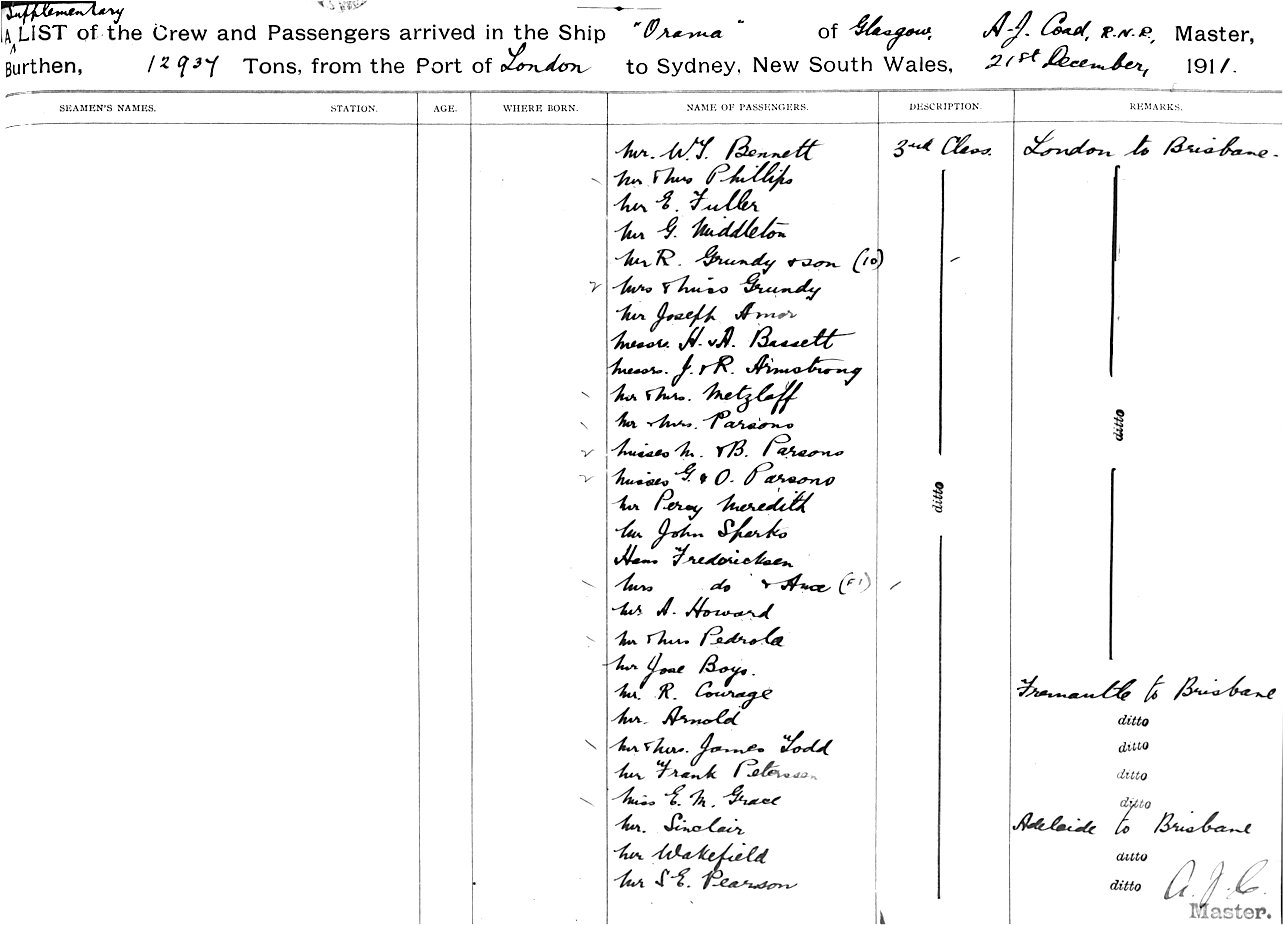 Supplementary
A LIST of the Crew and Passengers arrived in the Ship "Orama" of Glasgow, A.J. Coad, R.N.R., Master,
Burthen, 12937 Tons, from the Port of London to Sydney, New South Wales, 21st December, 1911.
SEAMEN'S NAMES. STATION. AGE. WHERE BORN. NAME OF PASSENGERS. DESCRIPTION. REMARKS.
Mr. W.T. Bennett 3rd Class. London to Brisbane.
Mr & Mrs Phillips
Mr E. Fuller
Mr G. Middleton
Mr R. Grundy & son (10)
Mrs & Miss Grundy
Mr Joseph Amor
Messrs. H. & A. Bassett
Messrs. J. & R. Armstrong
Mr & Mrs. Metzlaff
Mr & Mrs. Parsons ditto
Misses M. & B. Parsons
Misses G. & O. Parsons ditto
Mr Percy Meredith
Mr John Sparks
Hans Fredericksen
Mrs do &
Mr A. Howard
Mr & Mrs Pedrola
Mr Jose Boys.
Mr. R. Courage Fremantle to Brisbane
Mr. Arnold ditto
Mr & Mrs. James Todd ditto
Mr Frank Petersson ditto
Miss E. M. Grace ditto
Mr. Sinclair Adelaide to Brisbane
Mr Wakefield ditto
Mr S E. Pearson ditto A.J.C.
Master.